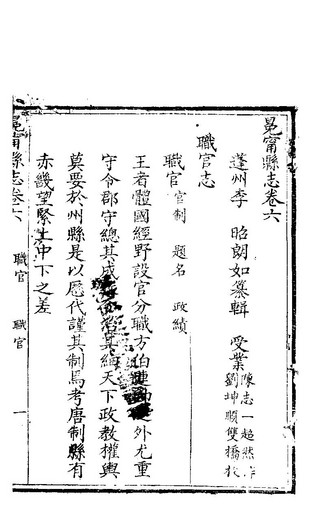 冕甯縣志卷六
蓬州李 昭朗如纂輯 受業 陳志一超然
劉坤順雙橋
職官志
職官 官制 題名 政績
王者體國經野設官分職方伯連 外尤重
守令郡守總其成 其 天下政教權輿
莫要於州縣是以歷代謹其制焉考唐制縣有
赤畿望緊上中下之差
冕甯縣志卷六
職官 職官 一